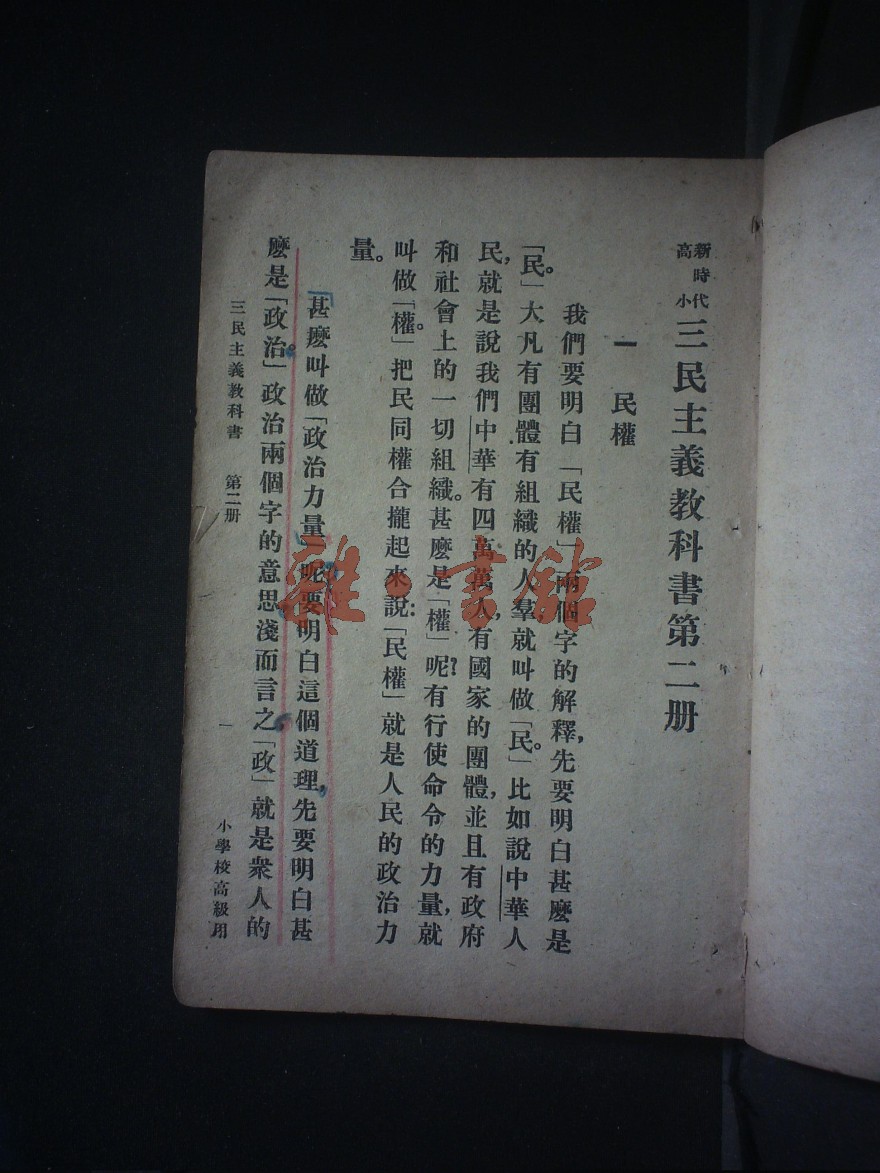 新時代高小 三民主義教科書第二册
一 民權
我們要明白「民權」兩個字的解釋,先要明白甚麽是
「民。」大凡有團體有組織的人羣,就叫做「民。」比如說中華人
民,就是說我們中華有四萬萬人,有國家的團體,並且有政府
和社會上的一切組織。甚麽是「權」呢?有行使命令的力量,就
叫做「權。」把民同權合攏起來說:「民權」就是人民的政治力
量。
甚麽叫做「政治力量」呢要明白這個道理,先要明白甚
麽是「政治。」政治兩個字的意思淺而言之,「政」就是衆人的
三民主義教科書 第二册 一 小學校高級用
雜·書館